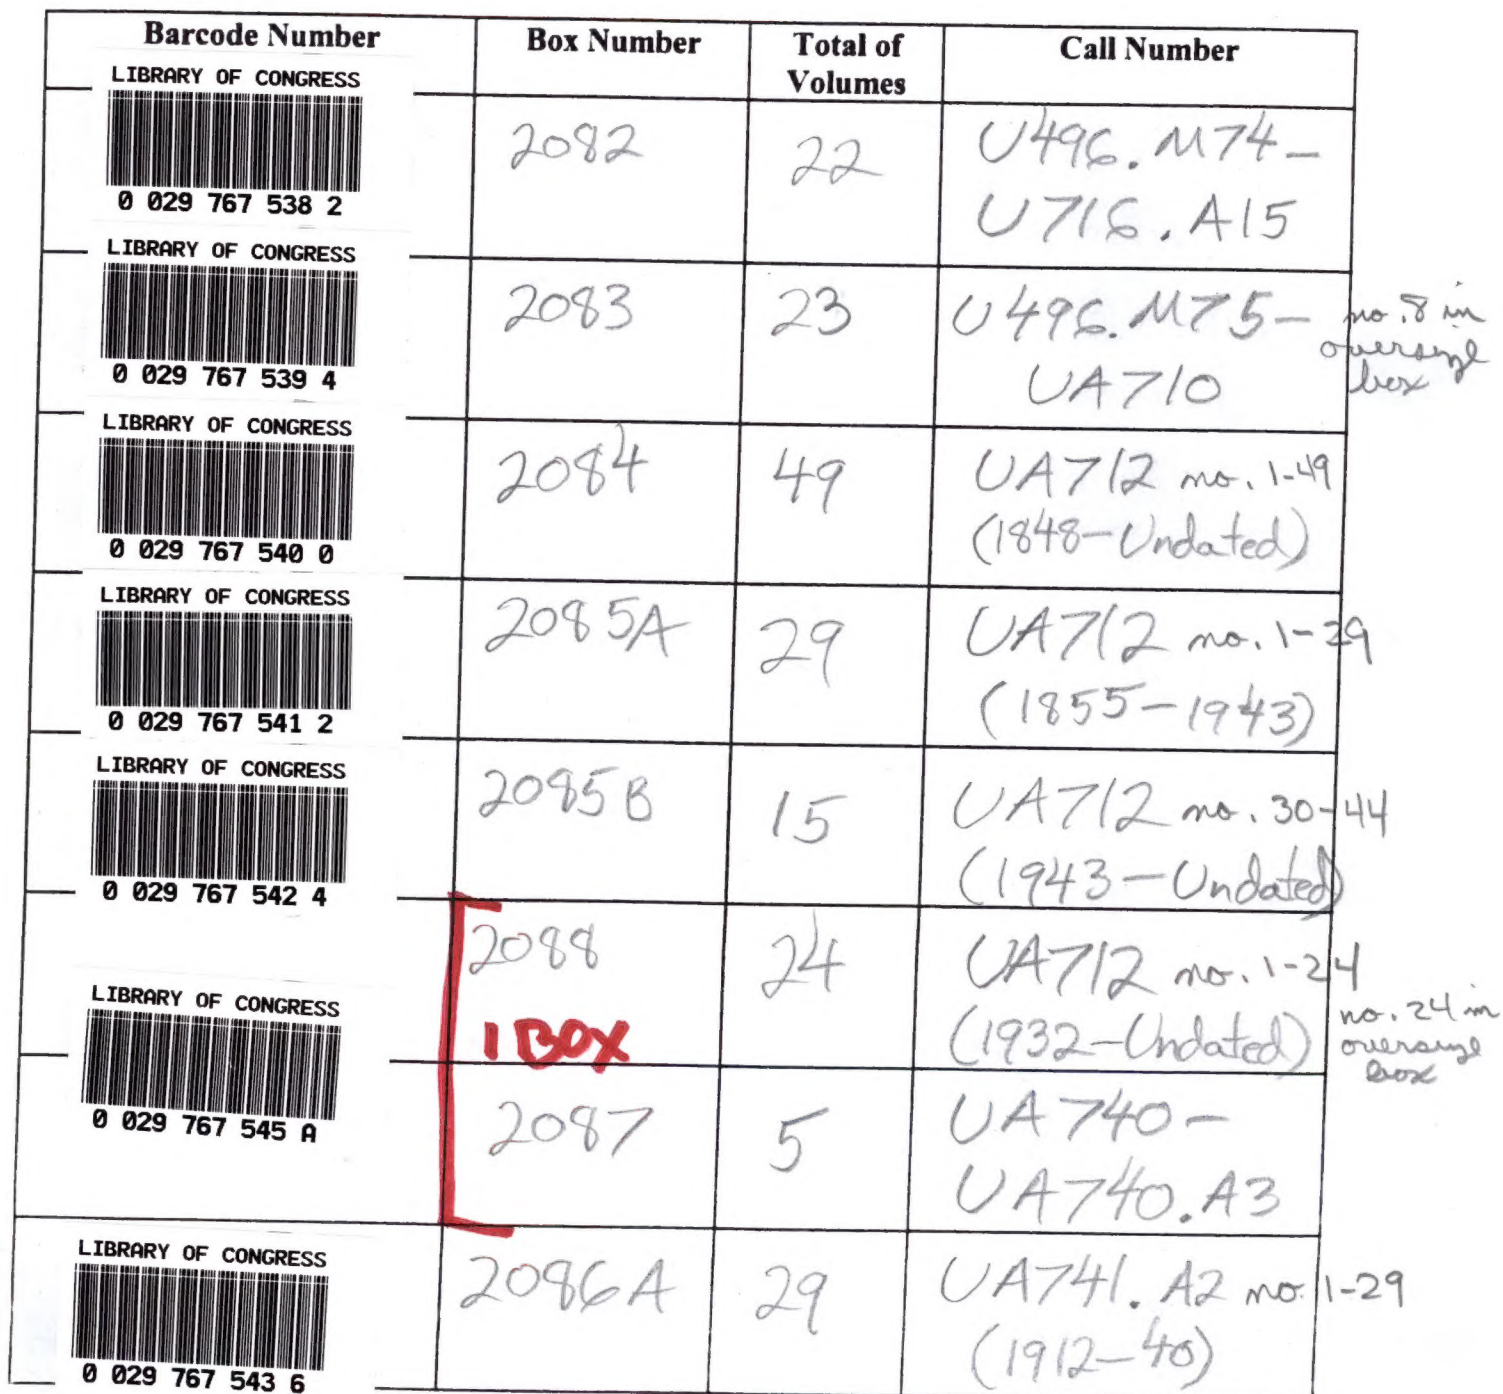 Barcode Number Box Number Total of Volumes Call Number
LIBRARY OF CONGRESS
0 029 767 538 2
2082 22 U496.M74-
U716.A15
LIBRARY OF CONGRESS
0 029 767 539 4
2083 23 U496.M75-
UA710
no. 8 in
oversize
box
LIBRARY OF CONGRESS
0 029 767 540 0
2084 49 UA712 no. 1-49
(1848-Undated)
LIBRARY OF CONGRESS
0 029 767 541 2
2085A 29 UA712 no. 1-29
(1855-1943)
LIBRARY OF CONGRESS
0 029 767 542 4
2085B 15 UA712 no. 30-44
(1943-Undated)
LIBRARY OF CONGRESS
0 029 767 545 A
2088 24 UA712 no. 1-24
1 BOX (1932-Undated)
no. 24 in
oversize
box
2087 5 UA740-
UA740.A3
LIBRARY OF CONGRESS
0 029 767 543 6
2086A 29 UA741.A2 no. 1-29
(1912-40)